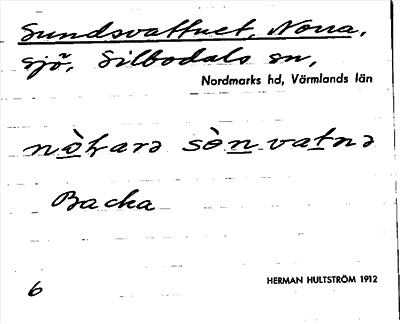 Sundsvattnet, Norra,
sjö, Silbodals sn,
Nordmarks hd, Värmlands län
sònvatnə
Backa
HERMAN HULTSTRÖM 1912
6